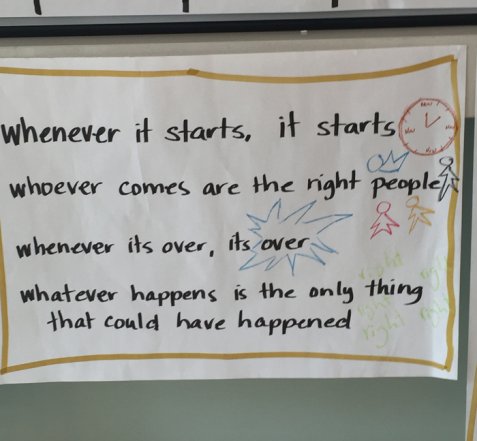 Whenever it starts, it starts
whoever comes are the right people
whenever its over, its over
whatever happens is the only thing
that could have happened
right right
right right
right